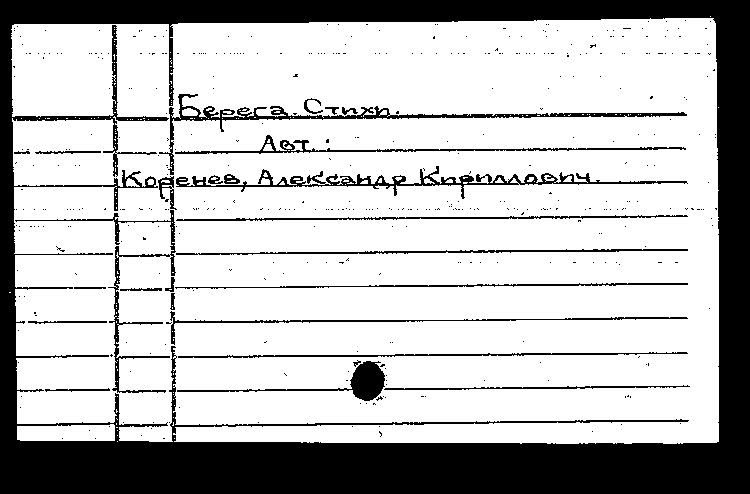 Берега. Стихи.
Авт. :
Коренев, Александр Кириллович.